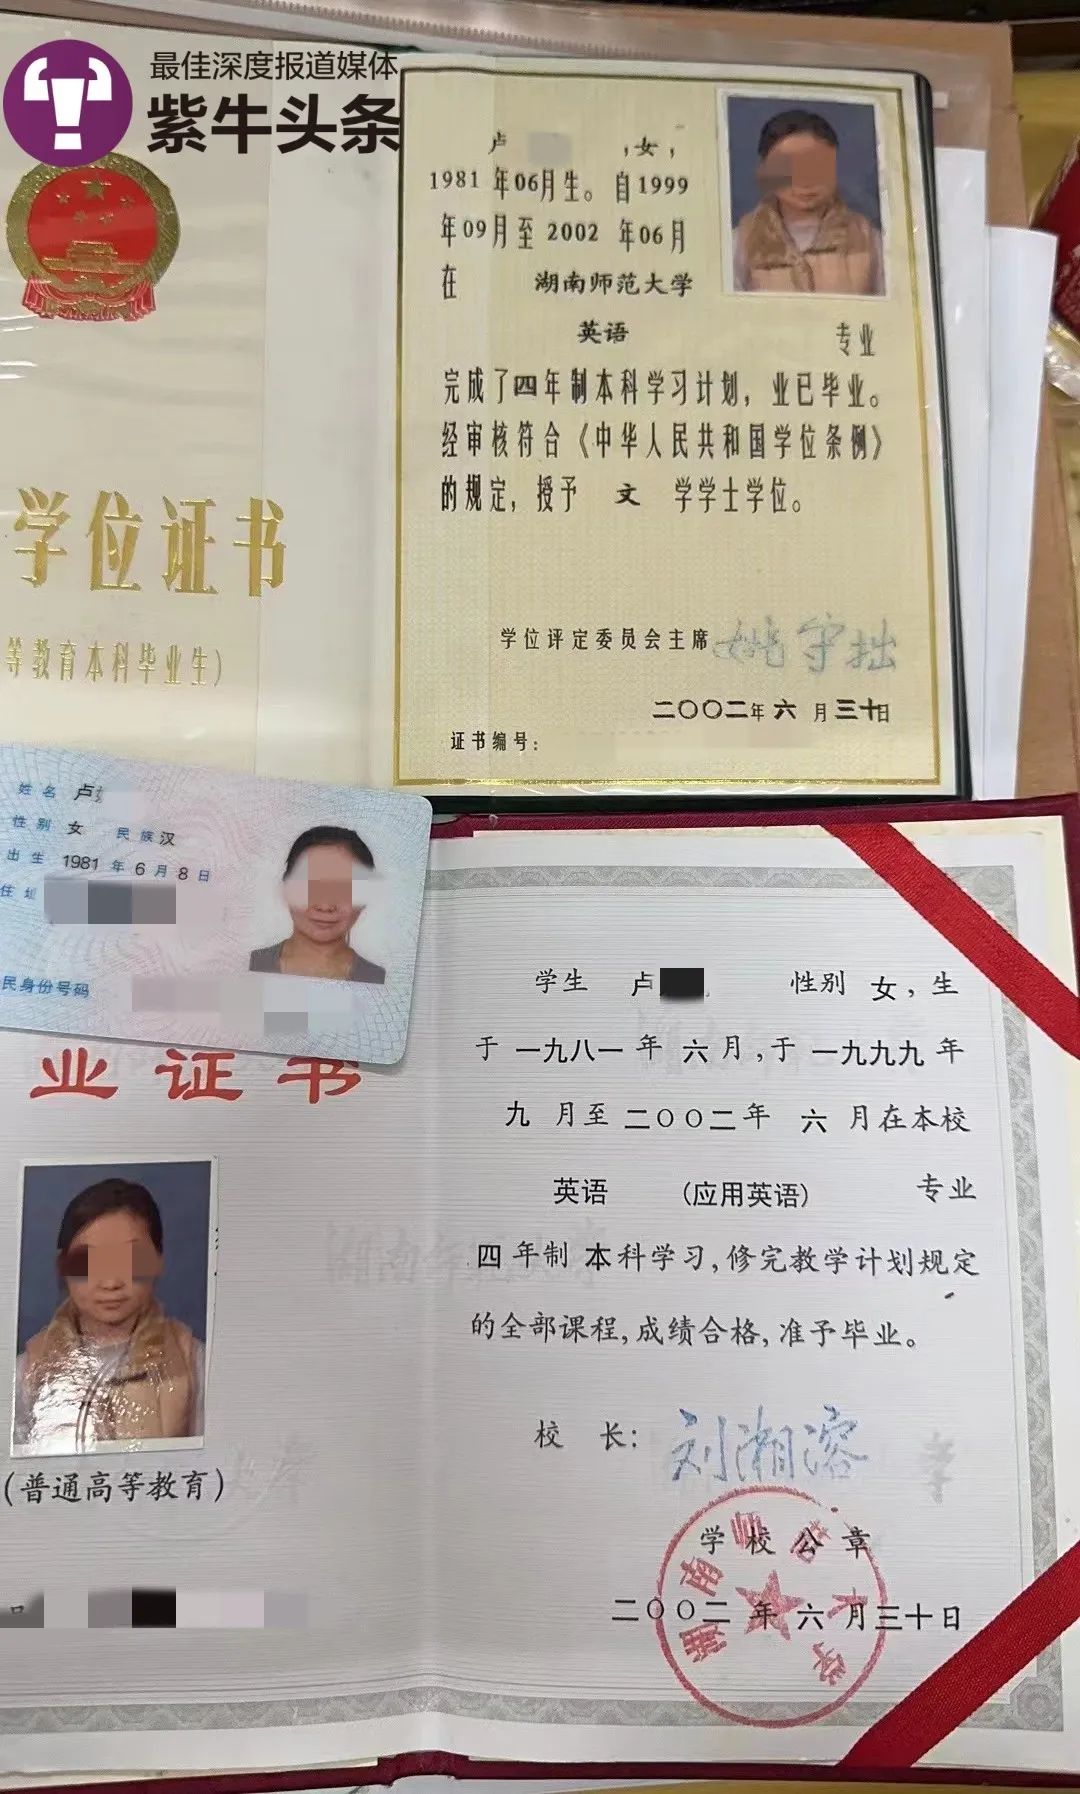 最佳深度报道媒体
紫牛头条
学位证书
等教育本科毕业生)
卢 ,女,
1981 年06月生。自1999
年09月至 2002 年06月
在 湖南师范大学
英语 专业
完成了四年制本科学习计划,业已毕业。
经审核符合《中华人民共和国学位条例》
的规定,授予 文 学学士学位。
学位评定委员会主席 姚守拙
二〇〇二年 六 月 三十日
证书编号:
姓名 卢
性别 女 民族 汉
出生 1981 年 6 月 8 日
住址
民身份号码
业证书
(普通高等教育)
学生 卢 性别 女,生
于 一九八一 年 六 月,于 一九九九 年
九 月至 二〇〇二 年 六 月在本校
英语 (应用英语) 专业
四 年制 本科学习,修完教学计划规定
的全部课程,成绩合格,准予毕业。
校 长: 刘湘溶
学校公章
二〇〇二 年 六 月三十日
湖南师范大学